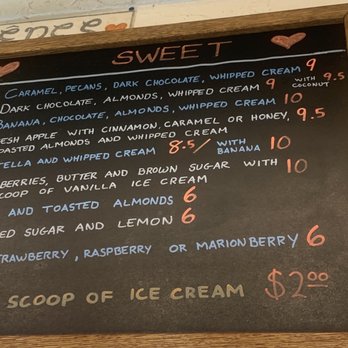 SWEET
CARAMEL, PECANS, DARK CHOCOLATE, WHIPPED CREAM 9
DARK CHOCOLATE, ALMONDS, WHIPPED CREAM 9 WITH COCONUT 9.5
BANANA, CHOCOLATE, ALMONDS, WHIPPED CREAM 10
APPLE WITH CINNAMON, CARAMEL OR HONEY, 9.5
ALMONDS AND WHIPPED CREAM
AND WHIPPED CREAM 8.5/ WITH BANANA 10
BERRIES, BUTTER AND BROWN SUGAR WITH 10
SCOOP OF VANILLA ICE CREAM
AND TOASTED ALMONDS 6
SUGAR AND LEMON 6
RASPBERRY OR MARIONBERRY 6
SCOOP OF ICE CREAM $2.00